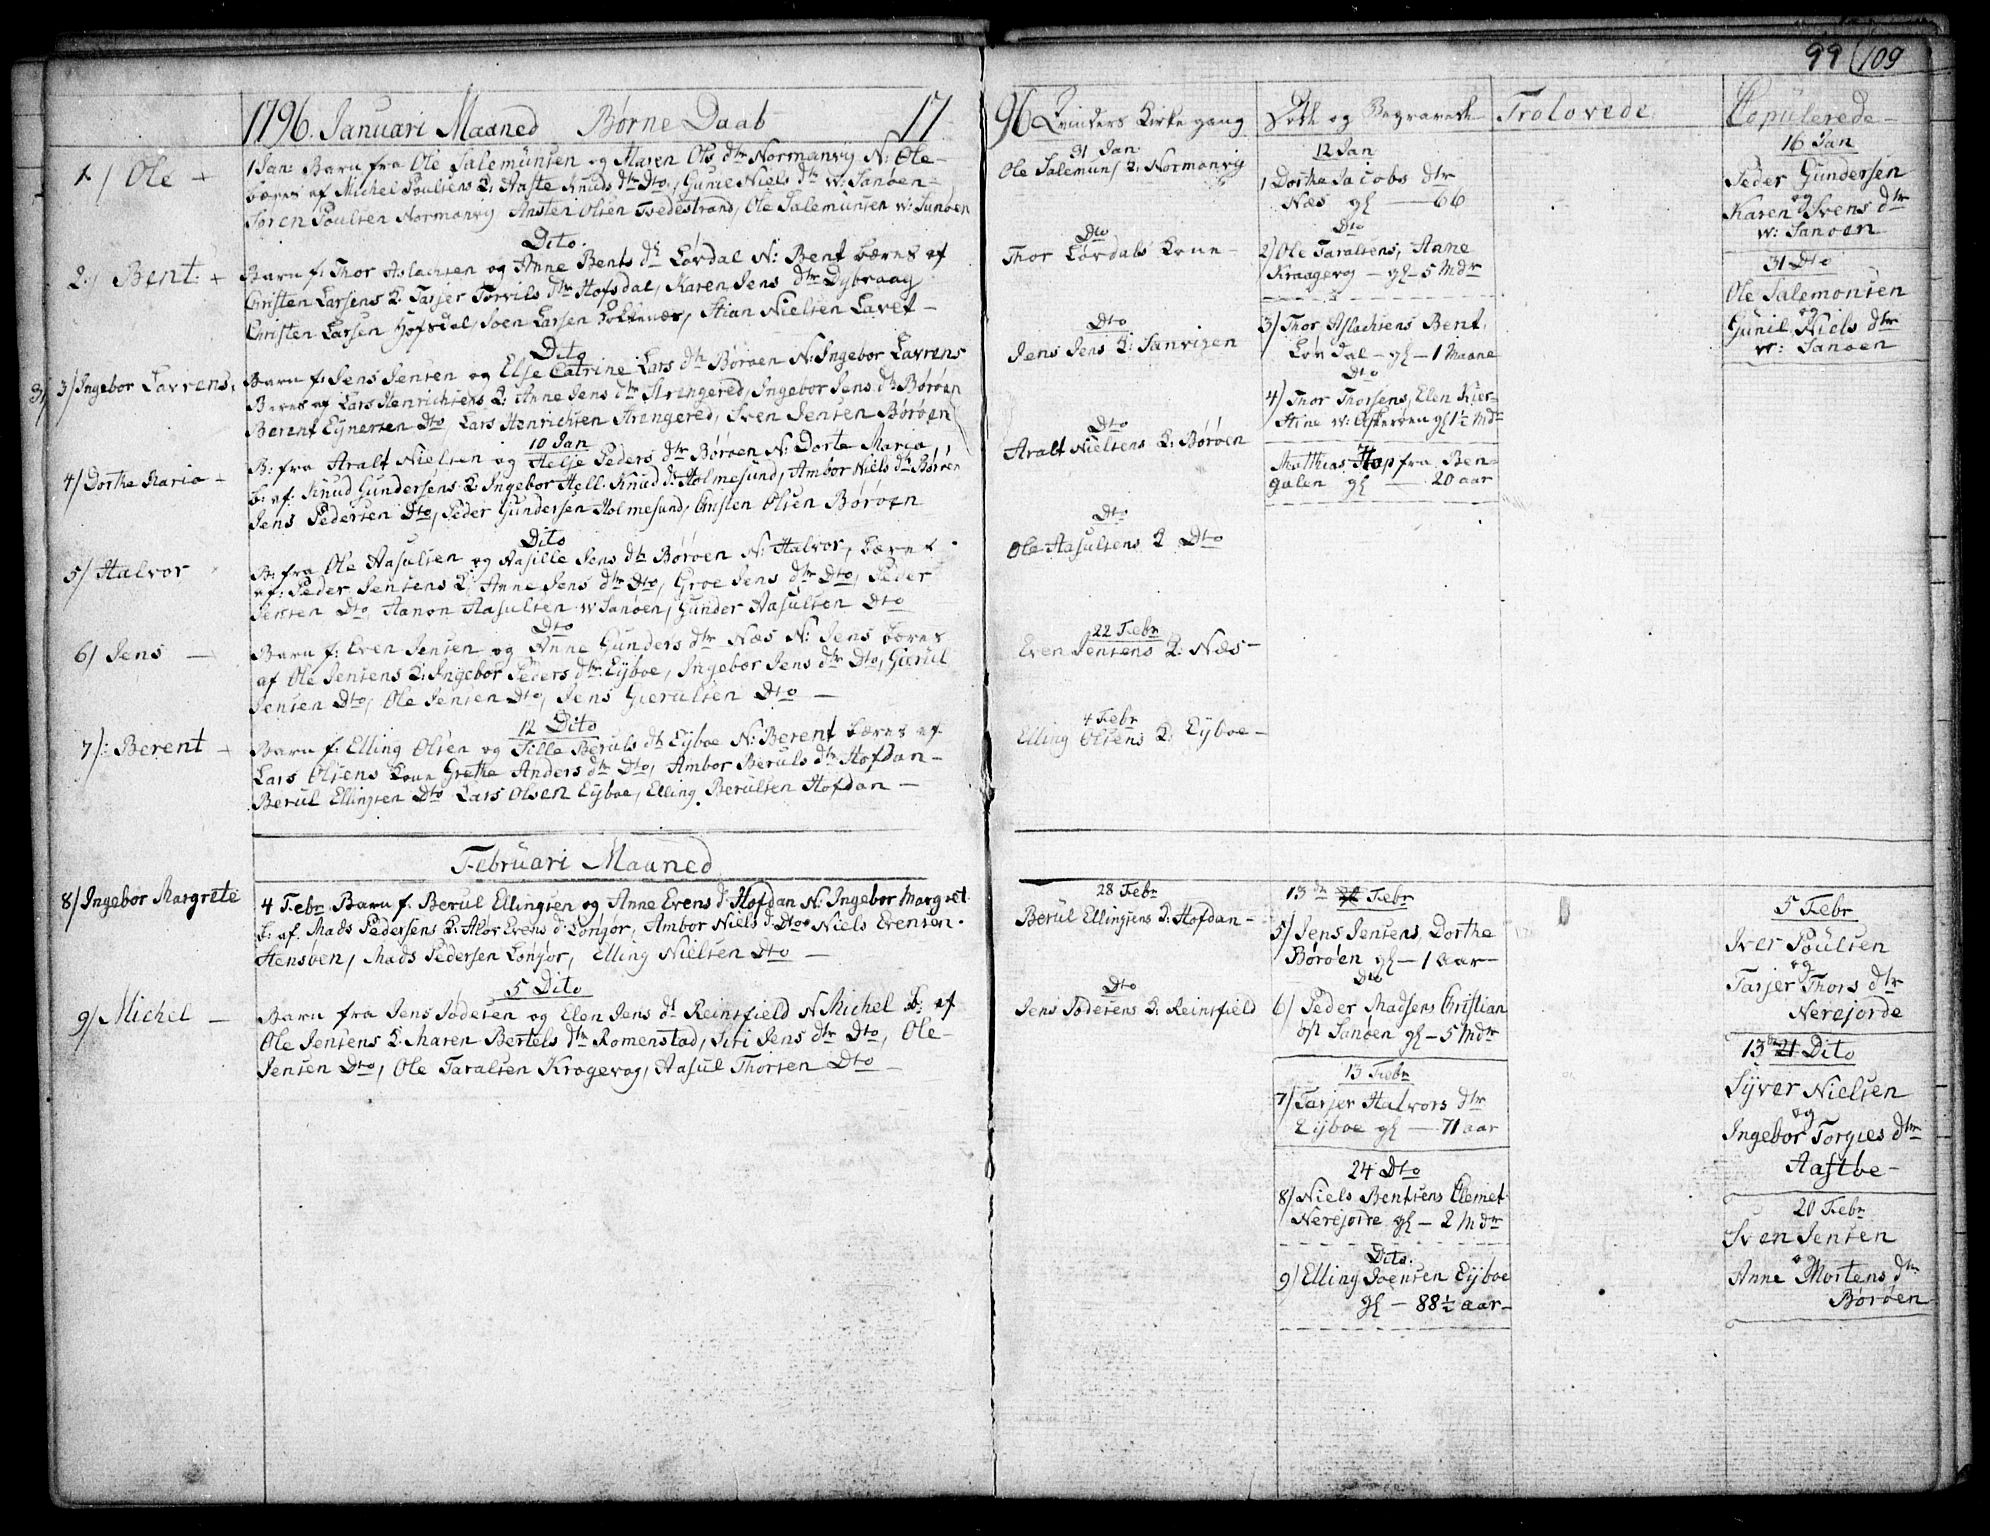 99 (109
1796. Januari Maaned Børne Daab 17
1/ Ole +
1 Jan: Barn fra Ole Salemunsen og Maren Ols dtr Normanvig N: Ole-
bæres af Michel Poulsens Q: Aaste Knuds dtr Dto, Gunie Niels dtr w: Sanøen-
Søren Poulsen Normanvig Ansten Olsen Tvedestrand, Ole Salemunsen w: Sanøen
Dito
2./ Bent: +
Barn f: Thor Aslachsen og Anne Bents dtr Løvdal N: Bent bæres af
Christen Larsens Q: Tarjer Torvils dtr Hofsdal, Karen Jens dtr Dybvaag
Christen Larsen Hofsdal, Soen Larsen, Stian Nielsen Lavet-
Dito
3/ 3/ Ingebor Lavrens:
Barn f: Jens Jensen og Else Catrine Lars dtr Børøen N: Ingebor Lavrens
Beres af Lars Henrichsens Q: Anne Jens dtr Strengered, Ingebor Jens dtr Børøen
Berent Eynersen Dto, Lars Henrichsen Strengered, Sven Jensen Børøen
10 Jan
4/ Dorthe Maria -
B: fra Aralt Nielsen og Helje Peders dtr Børøen N: Dorte Maria,
b: af: Knud Gundersens Q: Ingebor Hell: Knud dtr Holmesund, Ambor Niels dtr Børøen
Jens Pedersen Dto, Peder Gundersen Holmesund, Christen Olsen Børøen
Dito
5/ Halvor
B: fra Ole Aasulsen og Aasille Jens dtr Børøen N: Halvor, bæres
af: Peder Jensens Q: Anne Jens dtr Dto, Groe Jens dtr Dto, Peder
Jensen Dto, Aanon Aasulsen w Sanøen, Gunder Aasulsen Dto
Dto
6/ Jens -
Barn f: Even Jensen og Anne Gunders dtr Næs N: Jens bæres
af Ole Jensens Q: Ingebor Peders dtr Eyboe, Ingebor Jens dtr Dto, Gierul
Jensen Dto, Ole Jensen Dto, Jens Gierulsen Dto -
12 Dito
7/: Berent -
Barn f: Elling Olsen og Tille Beruls dtr Eyboe N: Berent bæres af
Lars Olsens Qone Grethe Anders dtr Dto, Ambor Beruls dtr Hofdan-
Berul Ellingsen Dto Lars Olsen Eyboe, Elling Berulsen Hofdan -
Februari Maaned
8/ Ingebor Margrete
4 Febr Barn f. Berul Ellingsen og Anne Evens d: Hofdan N: Ingebor Margret
b: af. Mads Pedersens Q: Alor Evens d: Longør, Ambor Niels d: Dto Niels Evensen.
Hensøen, Mads Pedersen Longør, Elling Nielsen Dto -
5 Dito
9/ Michel -
Barn fra Jens Todesen og Elen Jens dt Reinsfield N Michel b: af
Ole Jensens Q: Maren Bertels dtr Romenstad, Siri Jens dtr Dto, Ole-
Jensen Dto, Ole Taralsen Kragevog, Aasul Thorsen Dto -
96 Qvinders Kirkegang
31 Jan
Ole Salemuns Q: Normanvig
Dto
Thor Løvdals Qone-
Dto
Jens Jens Q: Sanvigen
Dto
Aralt Nielsens Q: Børøen
Dto
Ole Aasulsens Q Dto
22 Febr
Even Jensens Q: Næs-
4 Febr
Elling Olsens Q: Eyboe-
28 Febr
Berul Ellingsens Q: Hofdan-
Dto
Jens Todesens Q: Reinsfield
Døde og Begravede
12 Jan
1 Dorthe Jacobs dtr
Næs gl - 66
Dto
2/ Ole Taralsens, Anne
Kraagevog - gl - 5 Mdr
3/ Thor Aslachsens Bent.
Løvdal - gl - 1 Maane
Dto
4/ Thor Thorsens, Elen Kier-
stine w: Askerøen gl 1½ Mdr
Matthias Hop fra Ben-
galen gl - 20 aar
13 dn 21 Febr
5/ Jens Jensens, Dorthe
Børøen gl - 1 Aar-
Dto
6/ Peder Madsens Christian
øst Sanøen gl - 5 Mdr
13 Febr
7/ Tarjer Halvors dtr
Eyboe gl - 71 aar
24 Dto
8/ Niels Bentsens Clemet
Nerejorde gl - 2 Mdr
Dito.
9/ Elling Joensen Eyboe
gl - 88½ aar-
Trolovede
Copulerede-
16 Jan
Peder Gundersen
og
Karen Svens dtr
w: Sanøen
31 Dto
Ole Salemonsen
og
Gunil Niels dtr
w: Sanøen
5 Febr
Iver Poulsen
og
Tarjer Thors dtr
Nerejorde
13 de 21 Dito
Syver Nielsen
og
Ingebor Torgies dtr
Aastbe-
20 Febr
Sven Jensen
og
Anne Mortens dtr
Børøen